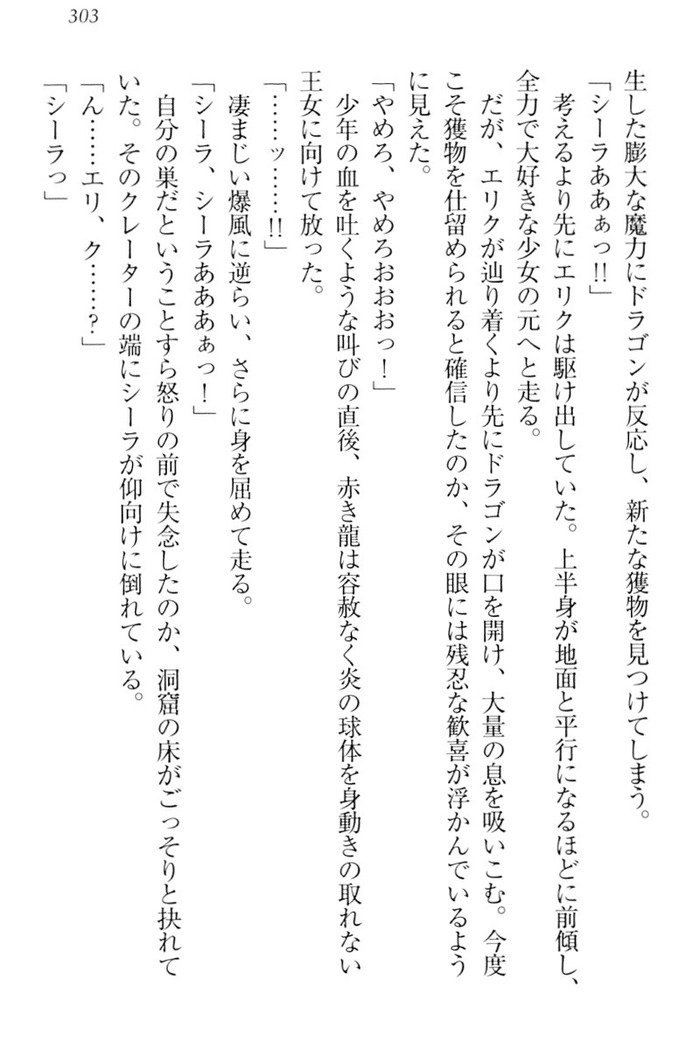 303
生した膨大な魔力にドラゴンが反応し、新たな獲物を見つけてしまう。
「シーラああぁっ!!」
考えるより先にエリクは駆け出していた。上半身が地面と平行になるほどに前傾し、
全力で大好きな少女の元へと走る。
だが、エリクが辿り着くより先にドラゴンが口を開け、大量の息を吸いこむ。今度
こそ獲物を仕留められると確信したのか、その眼には残忍な歓喜が浮かんでいるよう
に見えた。
「やめろ、やめろおおおっ！」
少年の血を吐くような叫びの直後、赤き龍は容赦なく炎の球体を身動きの取れない
王女に向けて放った。
「……ッ……!!」
凄まじい爆風に逆らい、さらに身を屈めて走る。
「シーラ、シーラあああぁっ！」
自分の巣だということすら怒りの前で失念したのか、洞窟の床がごっそりと抉れて
いた。そのクレーターの端にシーラが仰向けに倒れている。
「ん……エリ、ク……？」
「シーラっ」